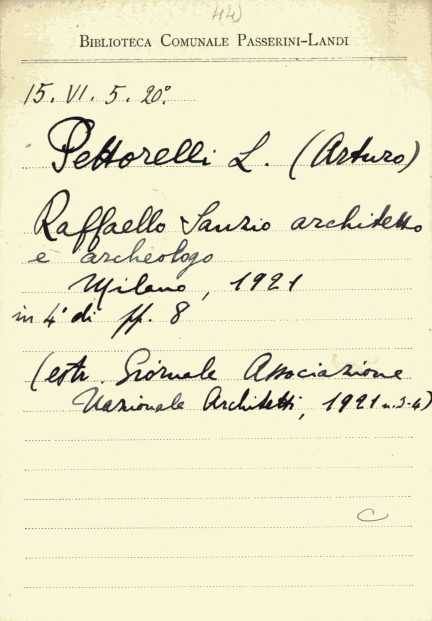 44)
BIBLIOTECA COMUNALE PASSERINI-LANDI
15. VI. 5. 20°.
Pettorelli L. (Arturo)
Raffaello Sanzio architetto
e archeologo
Milano, 1921
in 4° di pp. 8
(estr. Giornale Associazione
Nazionale Architetti, 1921 n. 3-4)
C